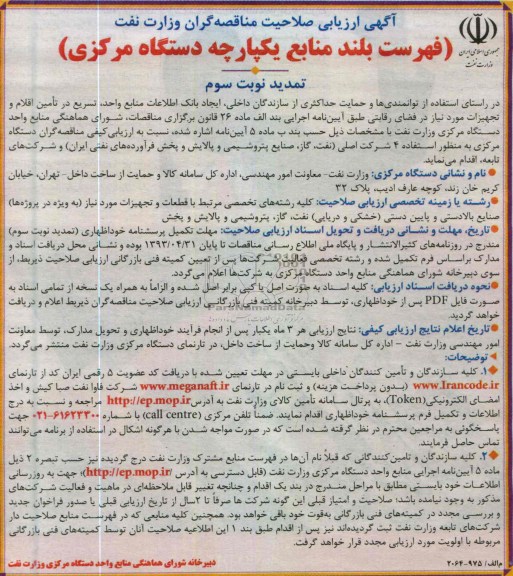 آگهی ارزیابی صلاحیت مناقصه‌گران وزارت نفت
(فهرست بلند منابع یکپارچه دستگاه مرکزی)
تمدید نوبت سوم
جمهوری اسلامی ایران
وزارت نفت
در راستای استفاده از توانمندی‌ها و حمایت حداکثری از سازندگان داخلی، ایجاد بانک اطلاعات منابع واحد، تسریع در تأمین اقلام و
تجهیزات مورد نیاز در فضای رقابتی طبق آیین‌نامه اجرایی بند الف ماده ۲۶ قانون برگزاری مناقصات، شورای هماهنگی منابع واحد
دستگاه مرکزی وزارت نفت با مشخصات ذیل حسب بند پ ماده ۵ آیین‌نامه اشاره شده، نسبت به ارزیابی کیفی مناقصه‌گران دستگاه
مرکزی به منظور استفاده ۴ شرکت اصلی (نفت، گاز، صنایع پتروشیمی و پالایش و پخش فرآورده‌های نفتی ایران) و شرکت‌های
تابعه، اقدام می‌نماید.
نام و نشانی دستگاه مرکزی: وزارت نفت- معاونت امور مهندسی، اداره کل سامانه کالا و حمایت از ساخت داخل- تهران، خیابان
کریم خان زند، کوچه عارف ادیب، پلاک ۳۲
رشته یا زمینه تخصصی ارزیابی صلاحیت: کلیه رشته‌های تخصصی مرتبط با قطعات و تجهیزات مورد نیاز (به ویژه در پروژه‌ها)
صنایع بالادستی و پایین دستی (خشکی و دریایی) نفت، گاز، پتروشیمی و پالایش و پخش
تاریخ، مهلت و نشانی دریافت و تحویل اسناد ارزیابی صلاحیت: مهلت تکمیل پرسشنامه خوداظهاری (تمدید نوبت سوم)
مندرج در روزنامه‌های کثیرالانتشار و پایگاه ملی اطلاع رسانی مناقصات تا پایان ۱۳۹۳/۰۴/۳۱ بوده و نشانی محل دریافت اسناد و
مدارک براساس فرم تکمیل شده و رشته تخصصی فعالیت شرکت‌ها پس از تعیین کمیته فنی بازرگانی ارزیابی صلاحیت ذیربط، از
سوی دبیرخانه شورای هماهنگی منابع واحد دستگاه مرکزی به شرکت‌ها اعلام می‌گردد.
نحوه دریافت اسناد ارزیابی: کلیه اسناد به صورت اصل یا کپی برابر اصل شده و الزاماً به همراه یک نسخه از تمامی اسناد به
صورت فایل PDF پس از خوداظهاری، توسط دبیرخانه کمیته فنی بازرگانی ارزیابی صلاحیت مناقصه‌گران ذیربط اعلام و دریافت
خواهد گردید.
تاریخ اعلام نتایج ارزیابی کیفی: نتایج ارزیابی هر ۳ ماه یکبار پس از انجام فرآیند خوداظهاری و تحویل مدارک، توسط معاونت
امور مهندسی وزارت نفت – اداره کل سامانه کالا و حمایت از ساخت داخل، در تارنمای دستگاه مرکزی وزارت نفت منتشر می‌گردد.
توضیحات:
۱. کلیه سازندگان و تأمین کنندگان داخلی بایستی در مهلت تعیین شده با دریافت کد عضویت ۵ رقمی ایران کد از تارنمای
www.Irancode.ir (بدون پرداخت هزینه) و ثبت نام در تارنمای www.meganaft.ir شرکت فاوا نفت صبا کیش و اخذ
امضای الکترونیکی (Token)، به پرتال سامانه تأمین کالای وزارت نفت به آدرس http://ep.mop.ir مراجعه و نسبت به درج
اطلاعات و تکمیل فرم پرسشنامه خوداظهاری اقدام نمایند. ضمناً تلفن مرکزی (call centre) با شماره ۶۱۶۲۳۳۰۰-۰۲۱ جهت
پاسخگوئی به مراجعین محترم در نظر گرفته شده است که در صورت مواجه شدن با هرگونه اشکال در استفاده از برنامه می‌توانند
تماس حاصل فرمایند
۲. کلیه سازندگان و تامین‌کنندگانی که قبلاً نام آن‌ها در فهرست منابع مشترک وزارت نفت درج گردیده نیز حسب تبصره ۲ ذیل
ماده ۵ آیین‌نامه اجرایی منابع واحد دستگاه مرکزی وزارت نفت (قابل دسترسی به آدرس http://ep.mop.ir/) جهت به روزرسانی
اطلاعات خود بایستی مطابق با مراحل مندرج در بند یک اقدام و چنانچه تغییر قابل ملاحظه‌ای در ماهیت و فعالیت شرکت‌های
مذکور به وجود نیامده باشد؛ صلاحیت و امتیاز قبلی این گونه شرکت ها صرفاً تا ۲ سال از تاریخ ارزیابی قبلی یا صدور فراخوان جدید
و بررسی مجدد در کمیته‌های فنی بازرگانی به‌قوت خود باقی خواهد بود. همچنین کلیه منابعی که در فهرست منابع صلاحیت دار
شرکت‌های تابعه وزارت نفت ثبت گردیده‌اند نیز پس از اقدام طبق بند ۱ این اطلاعیه صلاحیت آنان توسط کمیته‌های فنی بازرگانی
مربوطه با اولویت مورد ارزیابی مجدد قرار خواهد گرفت.
دبیرخانه شورای هماهنگی منابع واحد دستگاه مرکزی وزارت نفت
م‌الف/ ۹۷۵-۲۰۶۴
ParsNamadData